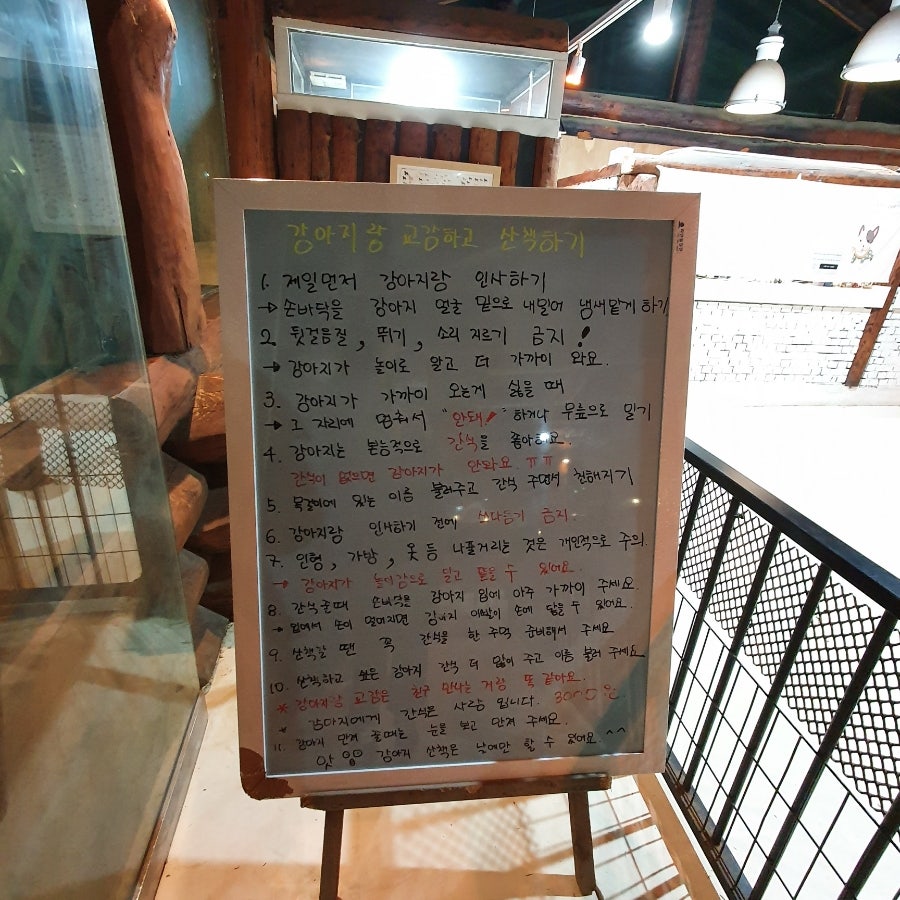 강아지랑 교감하고 산책하기
1. 제일먼저 강아지랑 인사하기
→ 손바닥을 강아지 얼굴 밑으로 내밀어 냄새맡게 하기
2. 뒷걸음질, 뛰기, 소리 지르기 금지!
→ 강아지가 놀이로 알고 더 가까이 와요.
3. 강아지가 가까이 오는게 싫을 때
→ 그 자리에 멈춰서 "안돼!" 하거나 무릎으로 밀기
4. 강아지는 본능적으로 간식을 좋아해요.
간식이 없으면 강아지가 안와요 ㅠㅠ
5. 목걸이에 있는 이름 불러주고 간식 주면서 친해지기
6. 강아지랑 인사하기 전에 쓰다듬기 금지.
7. 인형, 가방, 옷 등 나풀거리는 것은 개인적으로 주의.
→ 강아지가 놀이감으로 알고 물을 수 있어요.
8. 간식줄때 손바닥은 강아지 입에 아주 가까이 주세요
→ 입에서 손이 멀어지면 강아지 이빨이 손에 닿을 수 있어요.
9. 산책할 땐 꼭 간식을 한 주먹 준비해서 주세요
10. 산책하고 싶은 강아지 간식 더 많이 주고 이름 불러 주세요
* 강아지랑 교감은 친구 만나는 거랑 똑 같아요.
* 강아지에게 간식은 사랑 입니다. 3000원.
11. 강아지 만져 줄때는 눈을 보고 만져 주세요.
강아지 산책은 낮에만 할 수 있어요 ^^